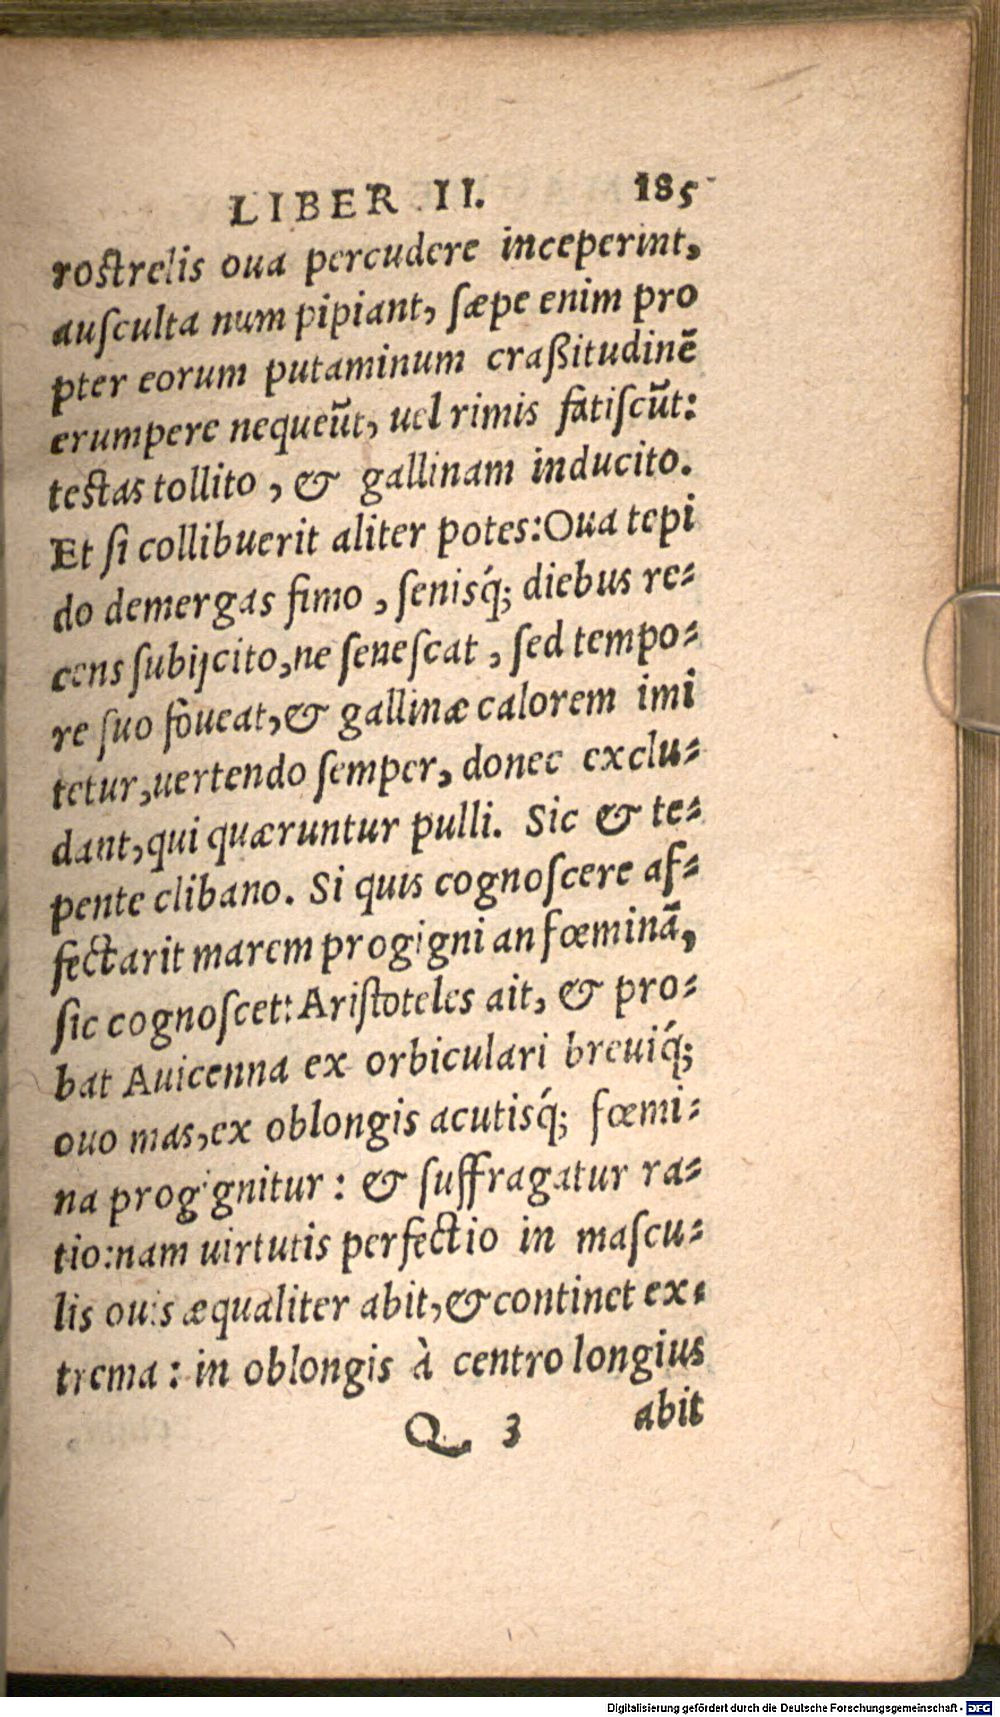 LIBER II. 185
rostrelis oua percudere inceperint,
auſculta num pipiant, ſæpe enim pro
pter eorum putaminum craßitudinē
erumpere nequeūt, uel rimis fatiſcūt:
testas tollito, & gallinam inducito.
Et ſi collibuerit aliter potes: Oua tepi
do demergas fimo, ſenisq́; diebus re-
cens ſubijcito, ne ſeneſcat, ſed tempo-
re ſuo foueat, & gallinæ calorem imi
tetur, uertendo ſemper, donec exclu-
dant, qui quæruntur pulli. Sic & te-
pente clibano. Si quis cognoſcere af-
fectarit marem progigni an fœminā,
ſic cognoſcet: Ariſtoteles ait, & pro-
bat Auicenna ex orbiculari breuiq́;
ouo mas, ex oblongis acutisq́; fœmi-
na progignitur: & ſuffragatur ra-
tio: nam uirtutis perfectio in maſcu-
lis ouis æqualiter abit, & continet ex-
trema: in oblongis à centro longius
Q 3 abit
Digitalisierung gefördert durch die Deutsche Forschungsgemeinschaft - DFG